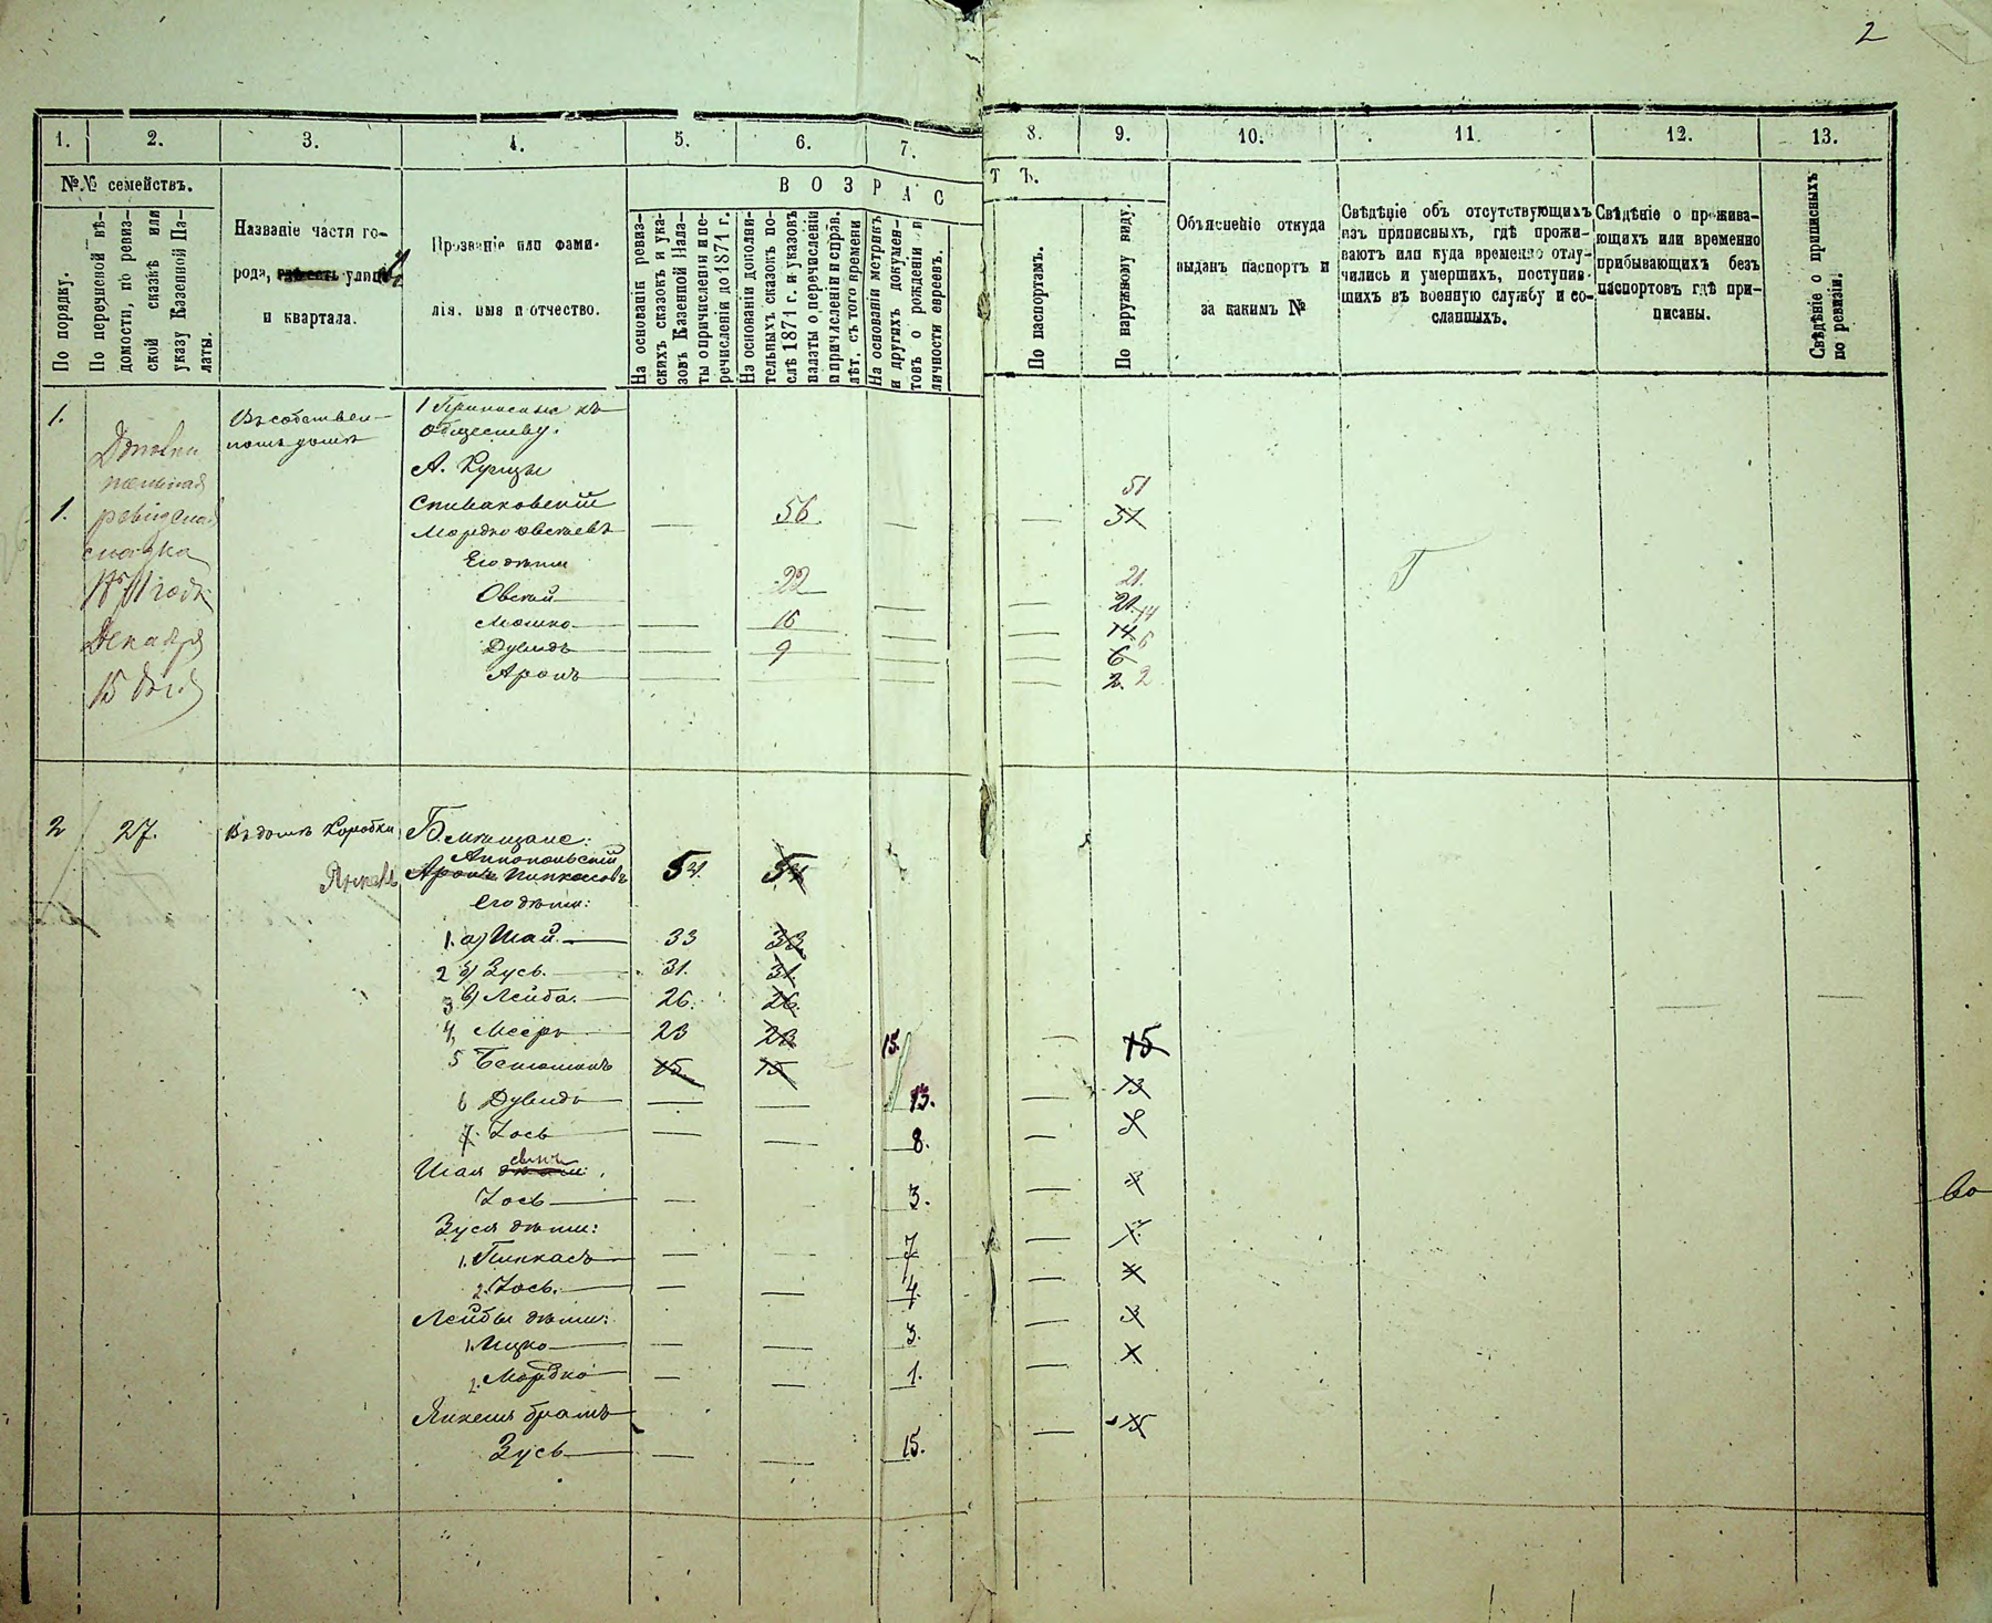 2
1. 2. 3. 4. 5. 6. 7. 8. 9. 10. 11. 12. 13.
№№ семействъ.
По порядку.
По перечневой вѣ-
домости, по ревиз-
ской сказкѣ или
указу Казенной Па-
латы.
Названіе части го-
рода, гдѣ есть улицы
и квартала.
Прозваніе или фами-
лія, имя и отчество.
ВОЗРАСТЪ.
На основаніи ревиз-
скихъ сказокъ и ука-
зовъ Казенной Пала-
ты о причисленіи и пе-
речисленіи до 1871 г.
На основаніи дополни-
тельныхъ сказокъ по-
слѣ 1871 г. и указовъ
палаты о перечисленіи
и причисленіи и справ.
лѣт. съ того времени
На основаніи метрикъ
и другихъ докумен-
товъ о рожденіи и
личности евреевъ.
По паспортамъ.
По наружному виду.
Объясненіе откуда
выданъ паспортъ и
за какимъ №
Свѣдѣніе объ отсутствующихъ
изъ приписныхъ, гдѣ прожи-
ваютъ или куда временно отлу-
чились и умершихъ, поступив-
шихъ въ военную службу и со-
сланныхъ.
Свѣдѣніе о прожива-
ющихъ или временно
прибывающихъ безъ
паспортовъ гдѣ при-
писаны.
Свѣдѣніе о приписныхъ
по ревизіи.
1.
Въ собствен-
номъ домѣ
1 Приписные къ
Обществу.
А. Купцы
1.
Дополни
тельная
ревизская
сказка
1871 года
Декабря
15 дня
Спиваковскій
Мордко Овсѣевъ 56. 51 51
Его дѣти
Овсей 22 21. 21.
Мошко 16 14 14.
Дувидъ 9 6 6
Аронъ 2. 2
2 27. Въ домѣ Коробки
Б. мѣщане:
Аннопольскій
Янкель Аронъ Пинкасовъ 54. 54
Его дѣти:
1. а) Шай 33 33
2 б) Зусь. 31. 31.
3 в) Лейба. 26. 26.
4, Мееръ 23 23
5 Беніоминъ 15. 15 15. 15
6 Дувидъ 13. 13
7. Іось 8. 8
Шая сынъ дѣти:
Іось 3. 3
Зуся дѣти:
1. Пинкасъ 7 7.
2. Іось. 4. 4
Лейбы дѣти:
1. Ицко 3. 3
2. Мордко 1. 1
Янкеля братъ
Зусь 15. 15